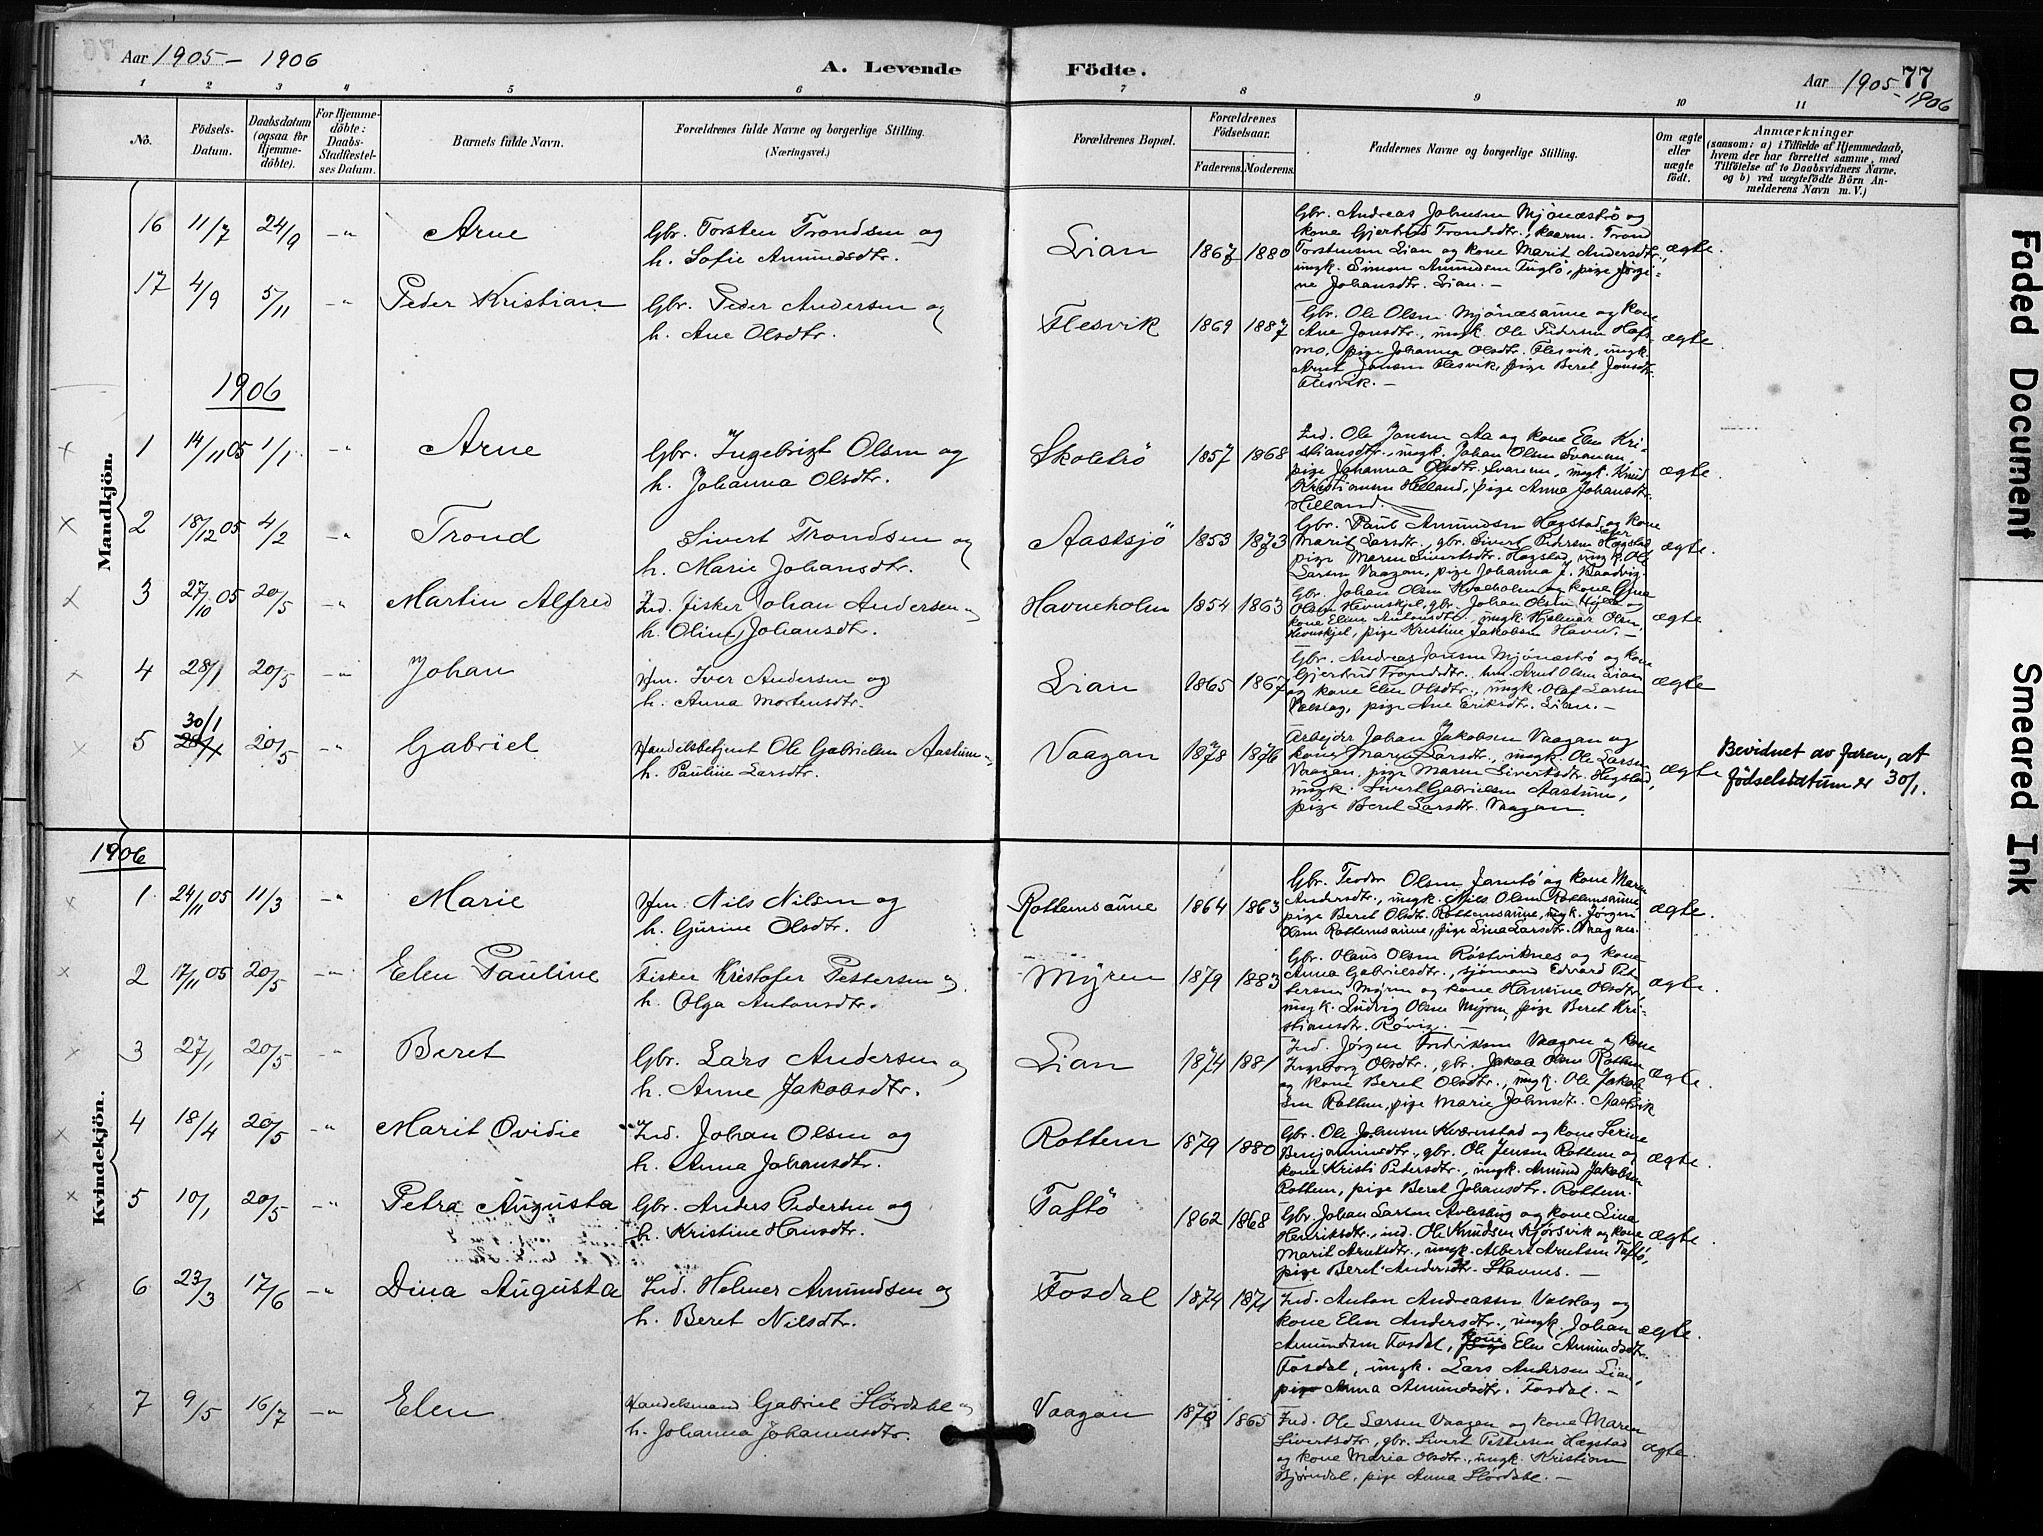 Aar 1905 – 1906
A. Levende Födte.
Aar 1905 - 1906
77
1 2 3 4 5 6 7 8 9 10 11
No.
Födsels-Datum.
Daabsdatum (ogsaa för Hjemme-döbte).
For Hjemme-döbte: Daabs-Stadfæstel-ses Datum.
Barnets fulde Navn.
Forældrenes fulde Navne og borgerlige Stilling.
(Næringsvei.)
Forældrenes Bopæl.
Forældrenes Födselsaar.
Faderens. Moderens.
Faddernes Navne og borgerlige Stilling.
Om ægte eller uægte födt.
Anmærkninger
(saasom: a) i Tilfælde af Hjemmedaab,
hvem der har forrettet samme, med
Tilföielse af to Daabsvidners Navne.
og b) ved uægtefödte Börn An-
melderens Navn m. V.)
Mandkjön.
16 11/7 24/9 -"- Arne
Gbr. Torsten Trondsen og
h. Sofie Amundsdtr.
Lian 1867 1880
Gbr. Andreas Johnsen Mjönæströ og
kone Gjertrud Trondsdtr., kaarm. Trond
Torstensen Lian og kone Marit Andersdtr.,
ungk. Simon Amundsen Fuglö, pige Jörgi-
ne Johansdtr. Lian. –
ægte.
17 4/9 5/11 -"- Peder Kristian
Gbr. Peder Andersen og
h. Ane Olsdtr.
Flesvik 1869 1887
Gbr. Ole Olsen Mjönæsaune og kone
Ane Jonsdtr., ungk. Ole Pedersen Hafs-
mo, pige Johanna Olsdtr. Flesvik, ungk.
Arnt Jonsen Flesvik, pige Beret Jonsdtr.
Flesvik. –
ægte
1906
1 14/11 05 1/1 -"- Arne
Gbr. Ingebrigt Olsen og
h. Johanna Olsdtr.
Skoleströ 1857 1868
Ind. Ole Jonsen Aa og kone Elen Kri-
stiansdtr., ungk. Johan Olsen Svanem,
pige Johanna Olsdtr. Svanem, ungk. Knud
Kristiansen Helland, pige Anna Johansdtr.
Helland.
ægte.
2 18/12 05 4/2 -"- Trond
Sivert Trondsen og
h. Marie Johansdtr.
Aastsjö 1853 1873
Gbr. Paul Amundsen Hægstad og kone
Marit Larsdtr., gbr. Sivert Pedersen Hægstad
pige Maren Sivertsdtr. Hægstad, ungk. Ole
Larsen Vaagan, pige Johanna J. Baadvig.
ægte.
3 27/10 05 20/5 -"- Martin Alfred
Ind. fisker Johan Andersen og
h. Oline Johansdtr.
Havneholm 1854 1863
Gbr. Johan Olsen Kvaleholm og kone Gina
Olsen Hevnskjel, gbr. Johan Olsen Hylla og
kone Eline Antonsdtr., ungk. Hjelmar Olsen
Hevnskjel, pige Kristine Jakobsen Havn. –
ægte
4 28/1 20/5 -"- Johan
Hm. Iver Andersen og
h. Anna Mortensdtr.
Lian 1865 1867
Gbr. Andreas Jonsen Mjönæströ og kone
Gjertrud Trondsdtr., hm. Arnt Olsen Lian
og kone Elen Olsdtr., ungk. Olaf Larsen
Valslag, pige Ane Eriksdtr. Lian. –
ægte
5 30/1 20/5 -"- Gabriel
Handelsbetjent Ole Gabrielsen Aastum og
h. Pauline Larsdtr.
Vaagan 1878 1876
Arbejdr Johan Jakobsen Vaagan og
kone Maren Larsdtr., ungk. Ole Larsen
Vaagan, pige Maren Sivertsdtr. Hegstad,
ungk. Sivert Gabrielsen Aastum,
pige Beret Larsdtr. Vaagan.
ægte
Bevidnet av faren, at
födselsdatum er 30/1.
1906
Kvindekjön.
1 24/11 05 11/3 -"- Marie
Hm. Nils Nilsen og
h. Gurine Olsdtr.
Rottemsaune 1864 1863
Gbr. Teodor Olsen Jamtö og kone Maren
Andersdtr., ungk. Niels Olsen Rottemsaune,
pige Beret Olsdtr. Rottemsaune, ungk. Jörgen
Olsen Rottemsaune, pige Lina Larsdtr. Vaagan.
ægte.
2 17/11 05 20/5 -"- Elen Pauline
Fisker Kristofer Pettersen og
h. Olga Antonsdtr.
Myren 1879 1883
Gbr. Olaus Olsen Röstviknes og kone
Anna Gabrielsdtr., sjömand Edvard Pet-
tersen Myren og kone Hansine Olsdtr,
ungk. Ludvig Olsen Myren, pige Beret Kri-
stiansdtr. Rövig. –
ægte.
3 27/1 20/5 -"- Beret
Gbr. Lars Andersen og
h. Anne Jakobsdtr.
Lian 1874 1881
Ind. Jörgen Fredriksen Vaagan og kone
Ingeborg Olsdtr., gbr. Jakob Olsen Rottem
og kone Beret Olsdtr., ungk. Ole Jakob-
sen Rottem, pige Marie Johnsdtr. Aastvik
ægte.
4 18/4 20/5 -"- Marit Ovidie
Ind. Johan Olsen og
h. Anna Johansdtr.
Rottem 1879 1880
Gbr. Ole Johnsen Kværnstad og kone Serine
Benjaminsdtr., gbr. Ole Jensen Rottem og
kone Kristi Pedersdtr., ungk. Amund Jakobsen
Rottem, pige Beret Johansdtr. Rottem.
ægte.
5 10/1 20/5 -"- Petra Augusta
Gbr. Anders Pedersen og
h. Kristine Hansdtr.
Taftö 1862 1868
Gbr. Johan Larsen Avlesbug og kone Lina
Henriksdtr., ind. Ole Knudsen Kjörsvik og kone
Marit Arntsdtr., ungk. Albert Arntsen Taftö,
pige Beret Andersdtr. Stavnes. –
ægte.
6 23/3 17/6 -"- Dina Augusta
Ind. Helmer Amundsen og
h. Beret Nilsdtr.
Fosdal 1874 1871
Ind. Anton Andreassen Valslag og
kone Elen Andersdtr., ungk. Johan
Amundsen Fosdal, kone Elen Amundsdtr.
Fosdal, ungk. Lars Andersen Lian,
pige Anna Amundsdtr. Fosdal. –
ægte.
7 9/5 16/7 -"- Elen
Handelsmand Gabriel Stördahl og
h. Johanna Johannesdtr.
Vaagan 1865
Ind. Ole Larsen Vaagan og kone Maren
Sivertsdtr., gbr. Sivert Pettersen Hægstad
og kone Maria Olsdtr., ungk. Kristian
Björndal, pige Anna Stördahl. –
ægte.
Faded Document
Smeared Ink